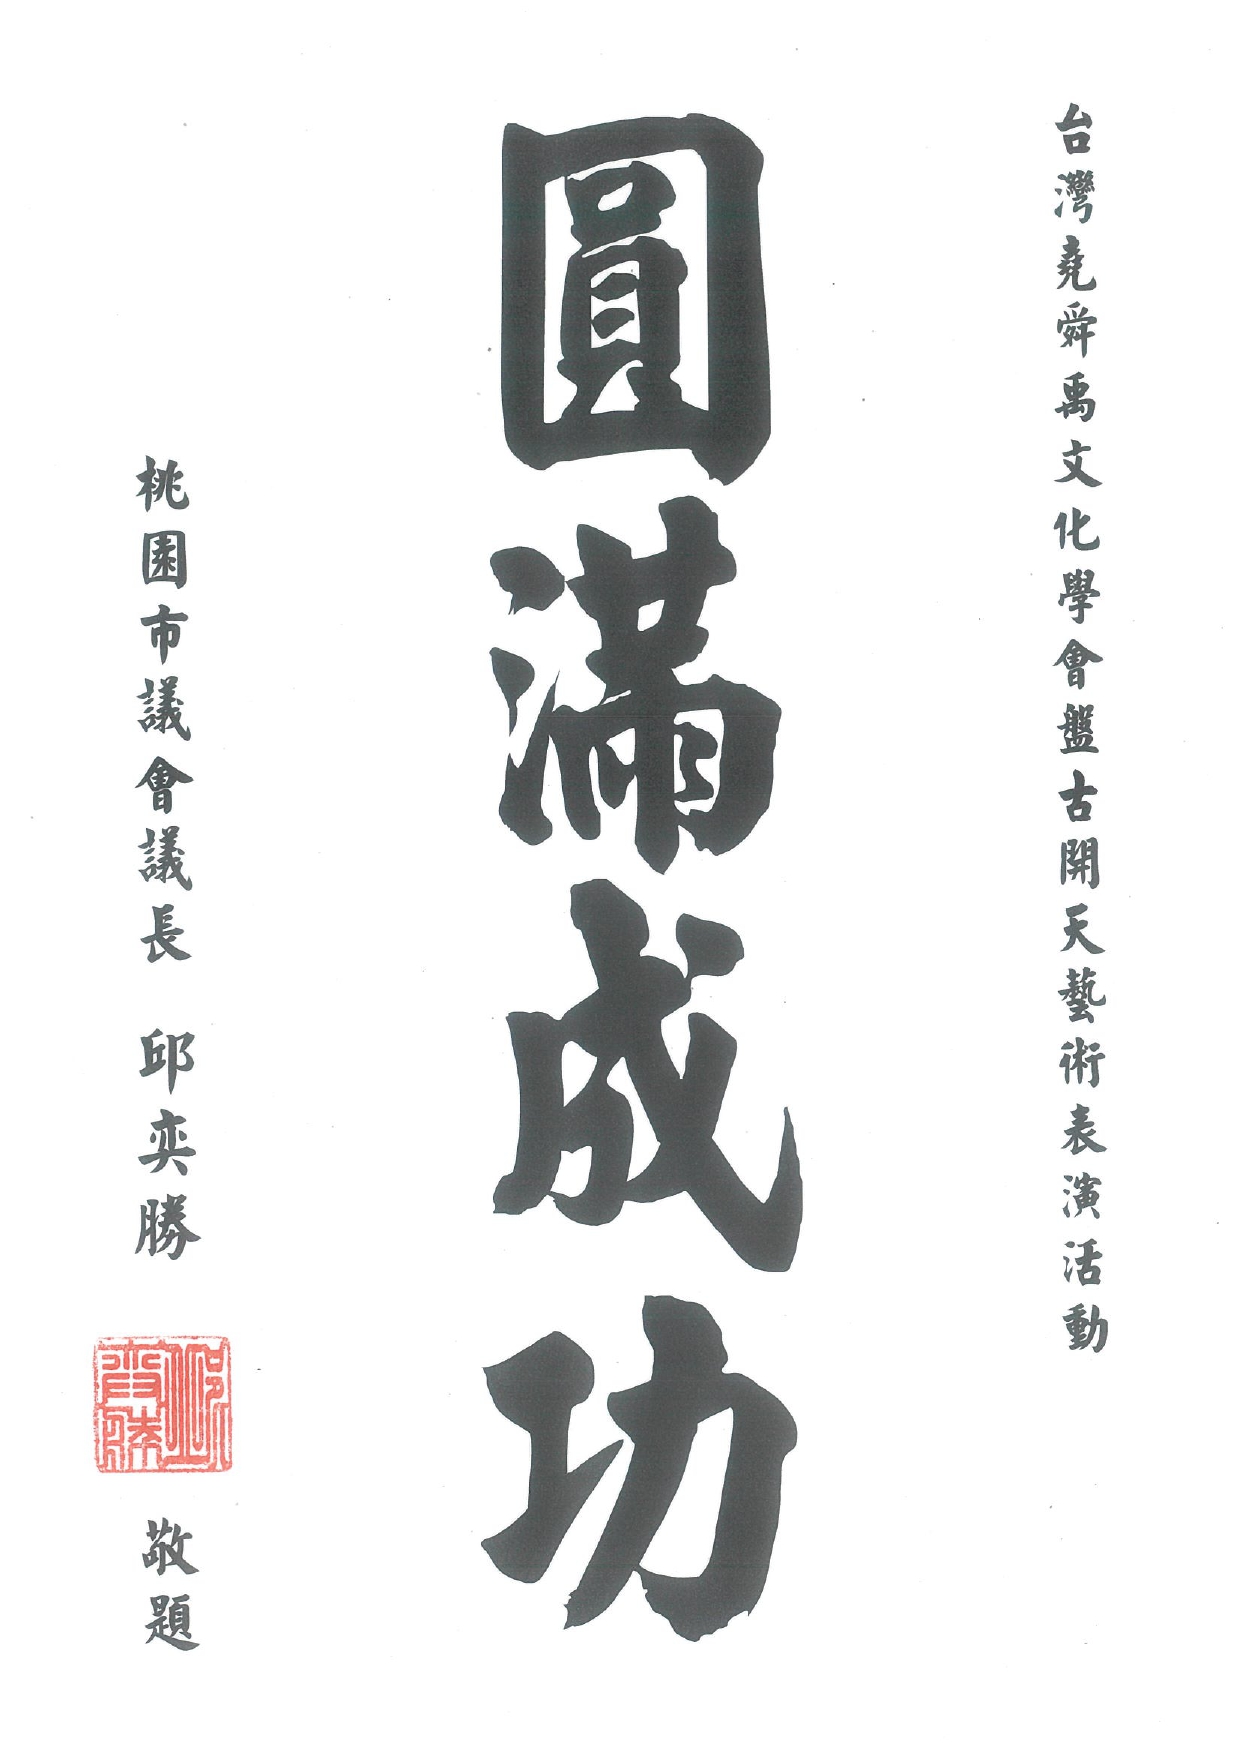 台灣堯舜禹文化學會盤古開天藝術表演活動
圓滿成功
桃園市議會議長 邱奕勝
邱奕勝
敬題